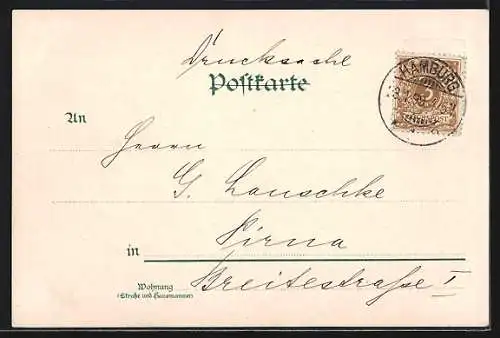 Drucksache
Postkarte
HAMBURG
An
Herrn
G. Lauschke
in Pirna
Wohnung
(Straße und Hausnummer)
Breitestrasse I